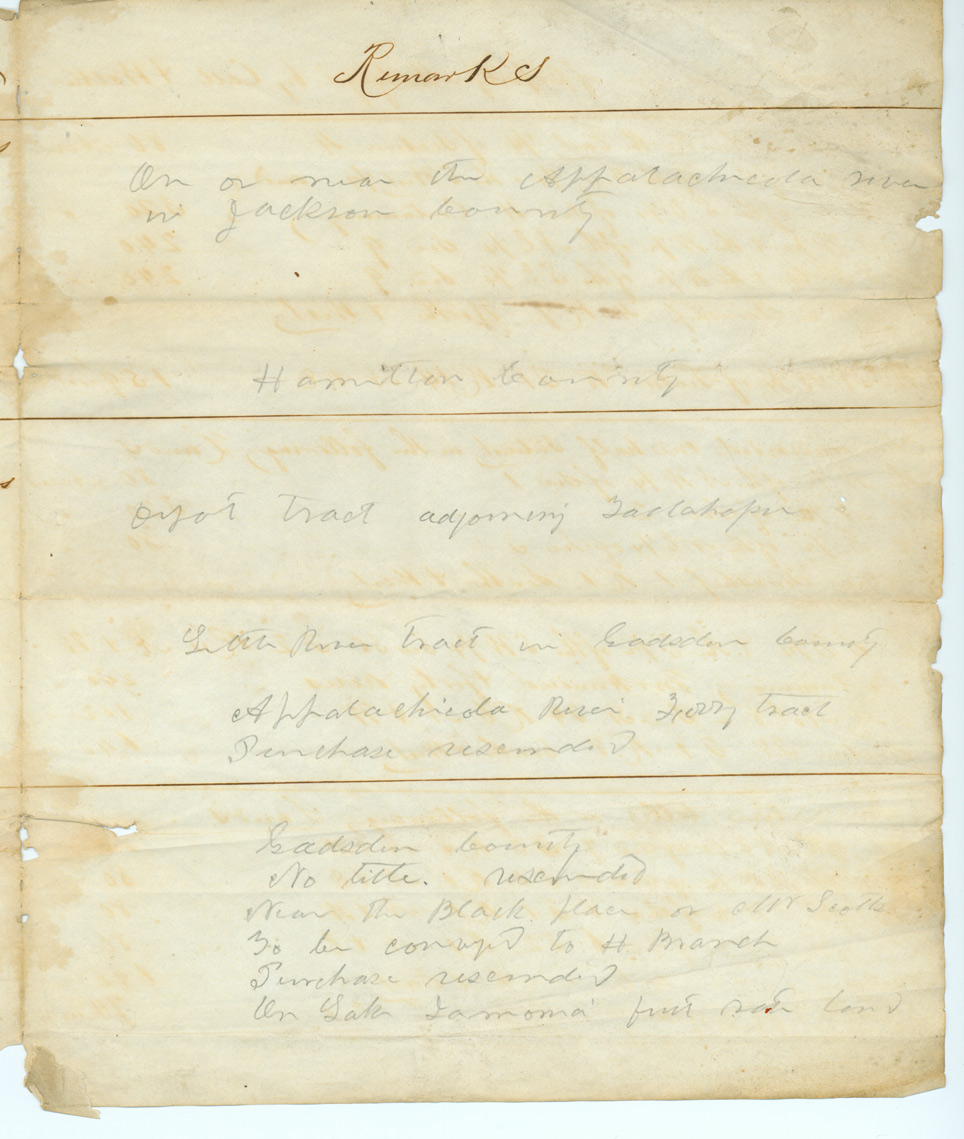 Remarks
On or near the Appalachicola river
in Jackson County
Hamilton County
tract adjoining
Little River tract in Gadsden County
Appalachicola River Ferry tract
Purchase rescinded
Gadsden County
No title. rescinded
Near the Black place or Mr Scotts
To be convayd to H Branch
Purchase rescinded
On Lake Iamonia first rate land